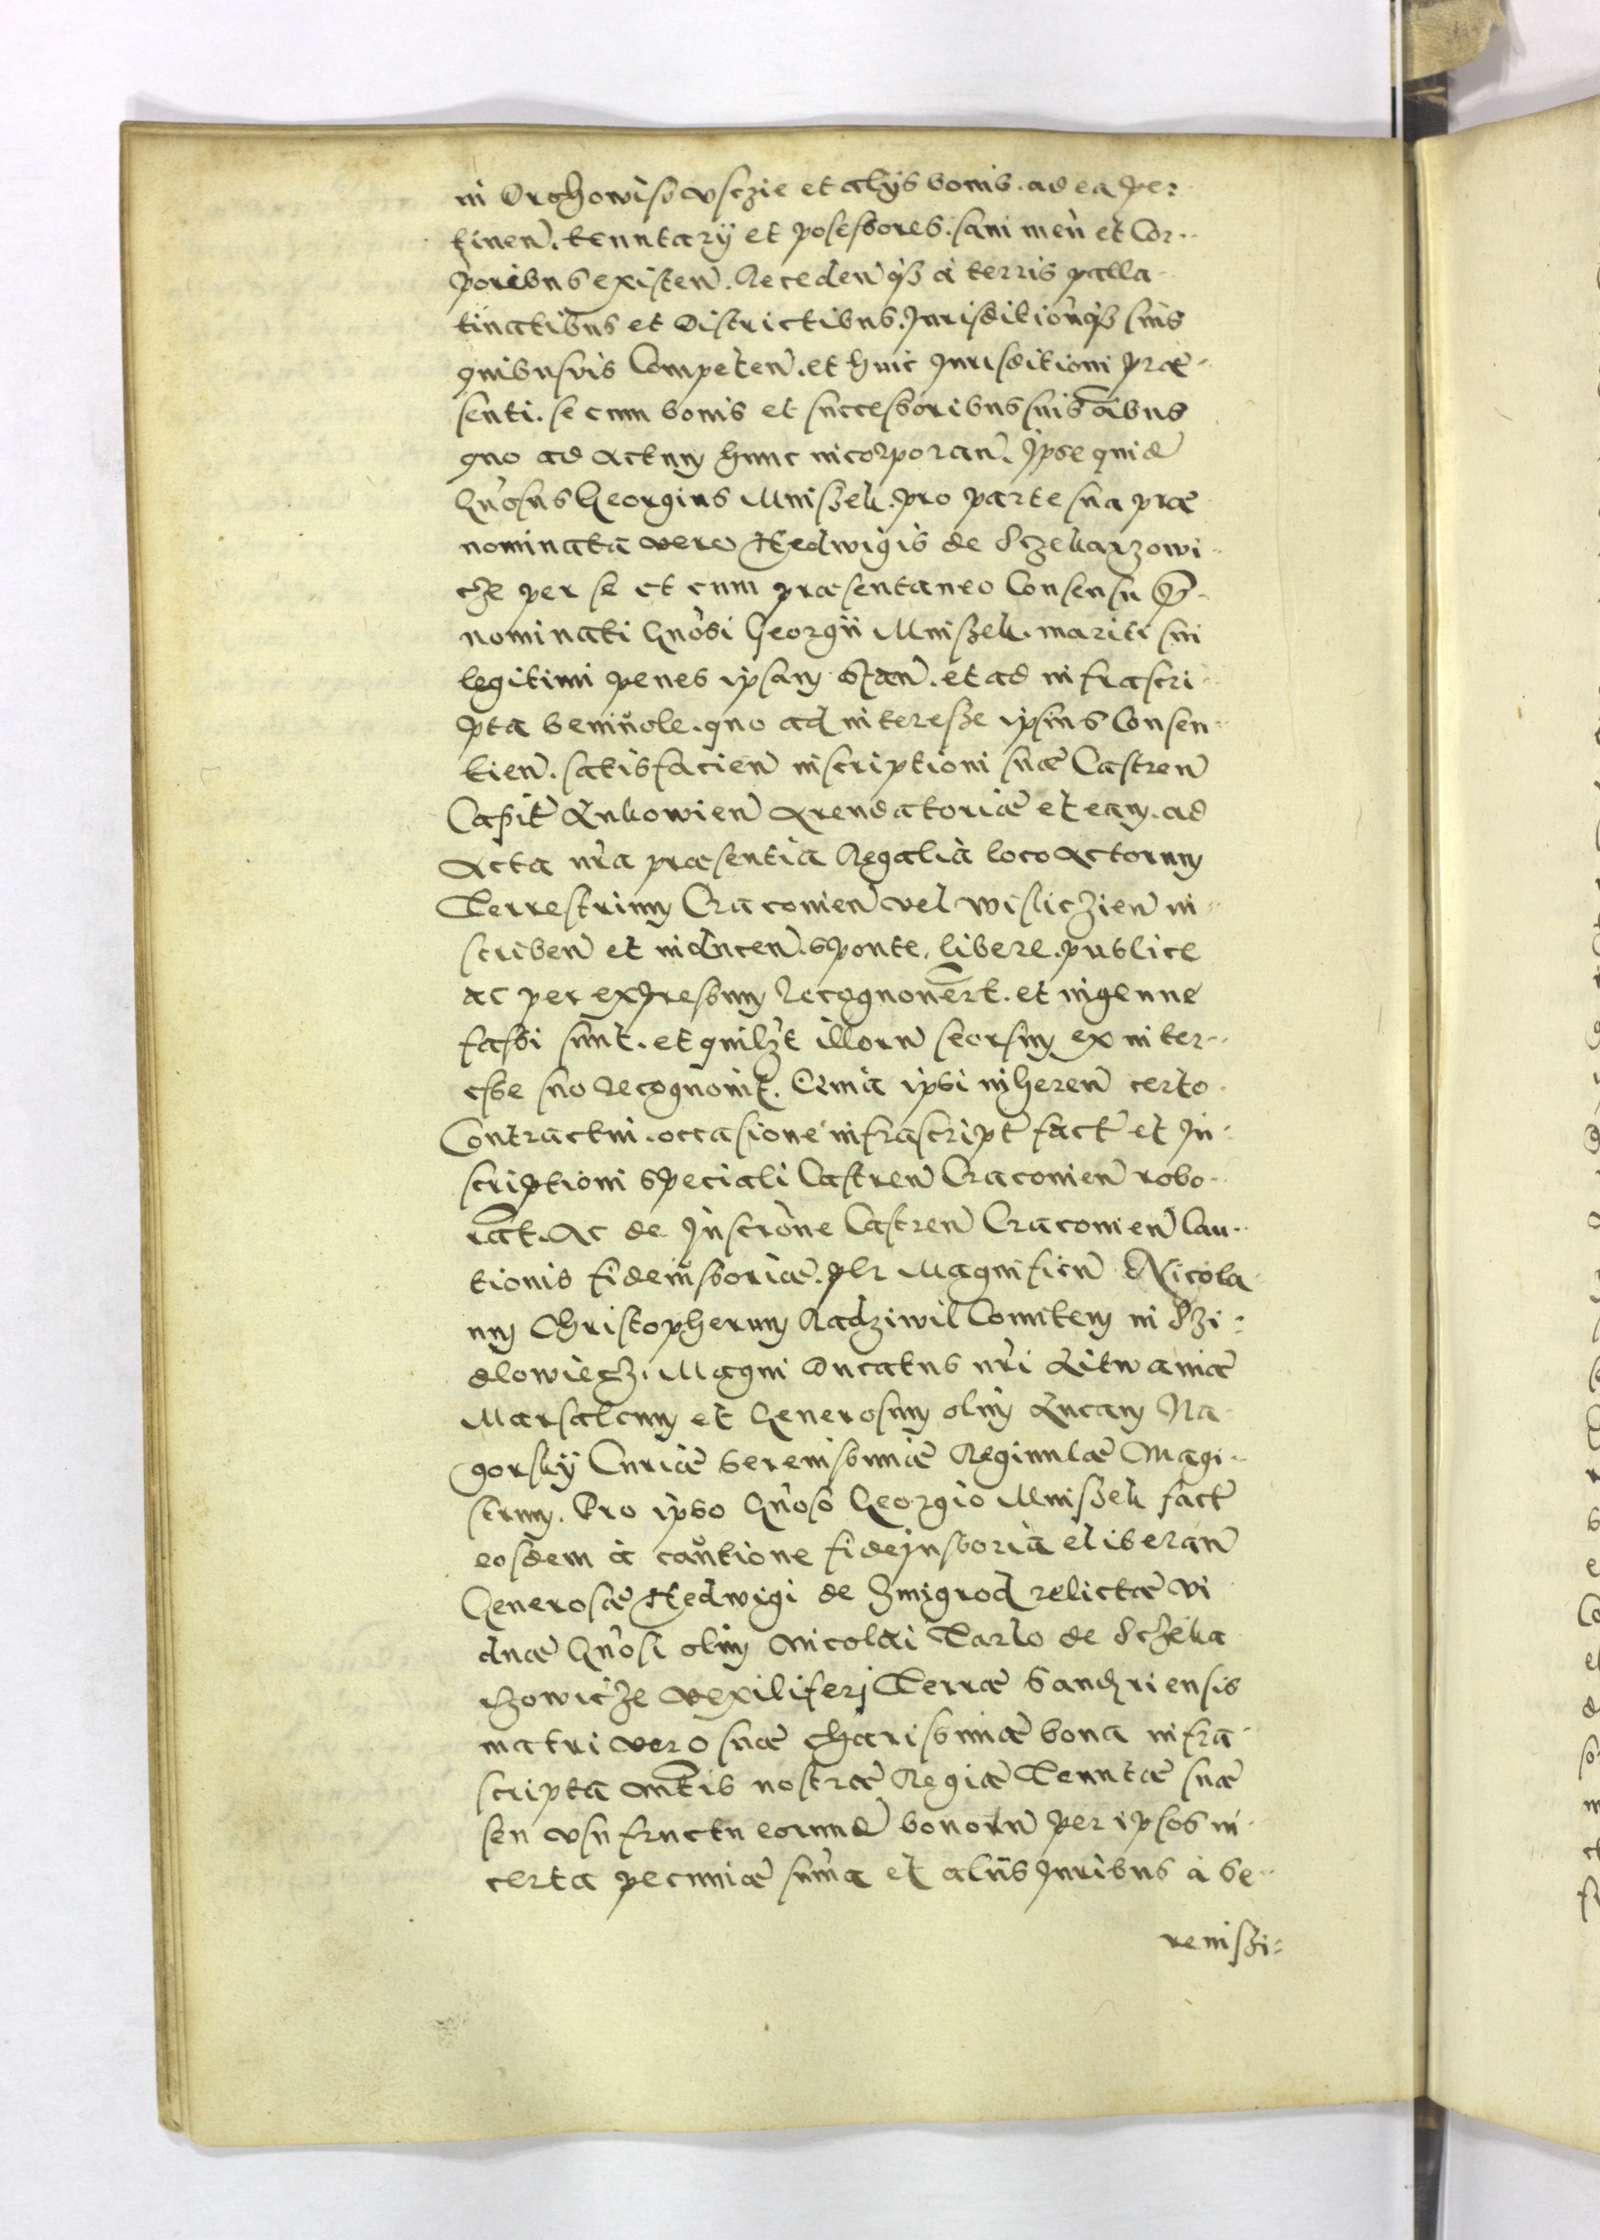 in Orchowisz Vsczie et alijs bonis. ad ea per-
tinen̄. tenutarij et possessores. sani men̄ et Cor-
poribus existen̄. Receden̄ qz à terris palla-
tinatibus et Districtibus. Jurisditionqz suis
quibusvis Competen̄. et huic Jurisditioni prae-
senti. se cum bonis et successoribus suis o̅ibus
quo ad Actum hunc incorporan̄. Ipse quidē
Gn̄osus Georgius Mniszek. pro parte sua prae
nominata vero Hedwigis de Sczekarzowi-
cze per se et cum praesentaneo Consensu p̄-
nominati Gn̄osi Georgii Mniszek. mariti sui
legitimi penes ipsam stan̄. et ad infrascri-
pta beniuole. quo ad interesse ipsius Consen-
tien̄. satisfacien̄ inscriptioni suae Castren̄
Capit̄ Lukowien̄ Arendatoriae et eam. ad
Acta n̄ra praesentia Regalia loco Actorum
Terrestrium Cracouien̄ vel Wisliczien̄ in-
scriben̄ et inducen̄. sponte, libere. publice
ac per expressum Recognouer̄t. et ingenue
fassi sunt. et quilzt illorū seorsim ex inter-
esse suo recognouit. Quia ipsi inheren̄ certo
Contractui. occasione infrascript̄ fact̄ et In-
scriptioni speciali Castren̄ Cracouien̄ robo-
rat̄. Ac de Inscr̄one Castren̄ Cracouien̄ Cau-
tionis fideiussoriae. per Magnificū Nicola
um Christopherum Radziwil Comitem in Szi-
dlowiecz. Magni Ducatus n̄ri Litwaniae
Marsalcum et Generosum olim Lucam Na
gorsky Curiae Serenissimae Reginulae Magi-
strum. Pro ipso Gn̄oso Georgio Mniszek fact̄
eosdem à cautione fideiussoria eliberan̄
Generosae Hedwigi de Zmigrod relictae vi
duae Gn̄osi olim Nicolai Tarlo de Sczeka
rzowicze Vexiliferj Terrae Sandriensis
matri vero suae charissimae bona infra
scripta M̄tis nostrae Regiae Tenutae suae
seu vsufructu eorundē bonorū per ipsos in
certa pecuniae sum̄a et aliis Iuribus à Se-
reniszi-